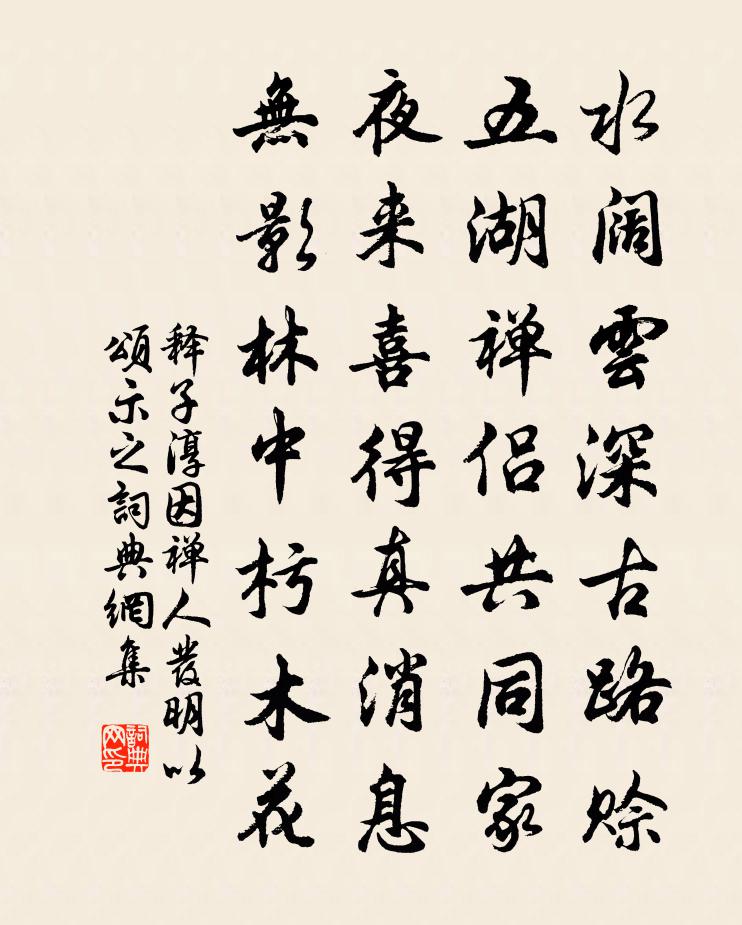 水阔雲深古路賒
五湖禅侣共同家
夜来喜得真消息
無影林中朽木花
释子淳因禅人發明以
頌示之詞典網集
詞典网印